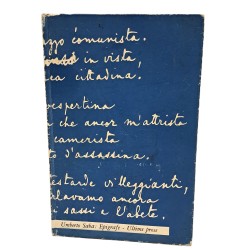 zzo comunista.
in vista,
ea cittadina.
vespertina
che ancor m'attrista
camerista
d'assassina.
testarde villeggianti,
rlavamo ancora
i sassi e l'abete.
Umberto Saba: Epigrafe - Ultime prose